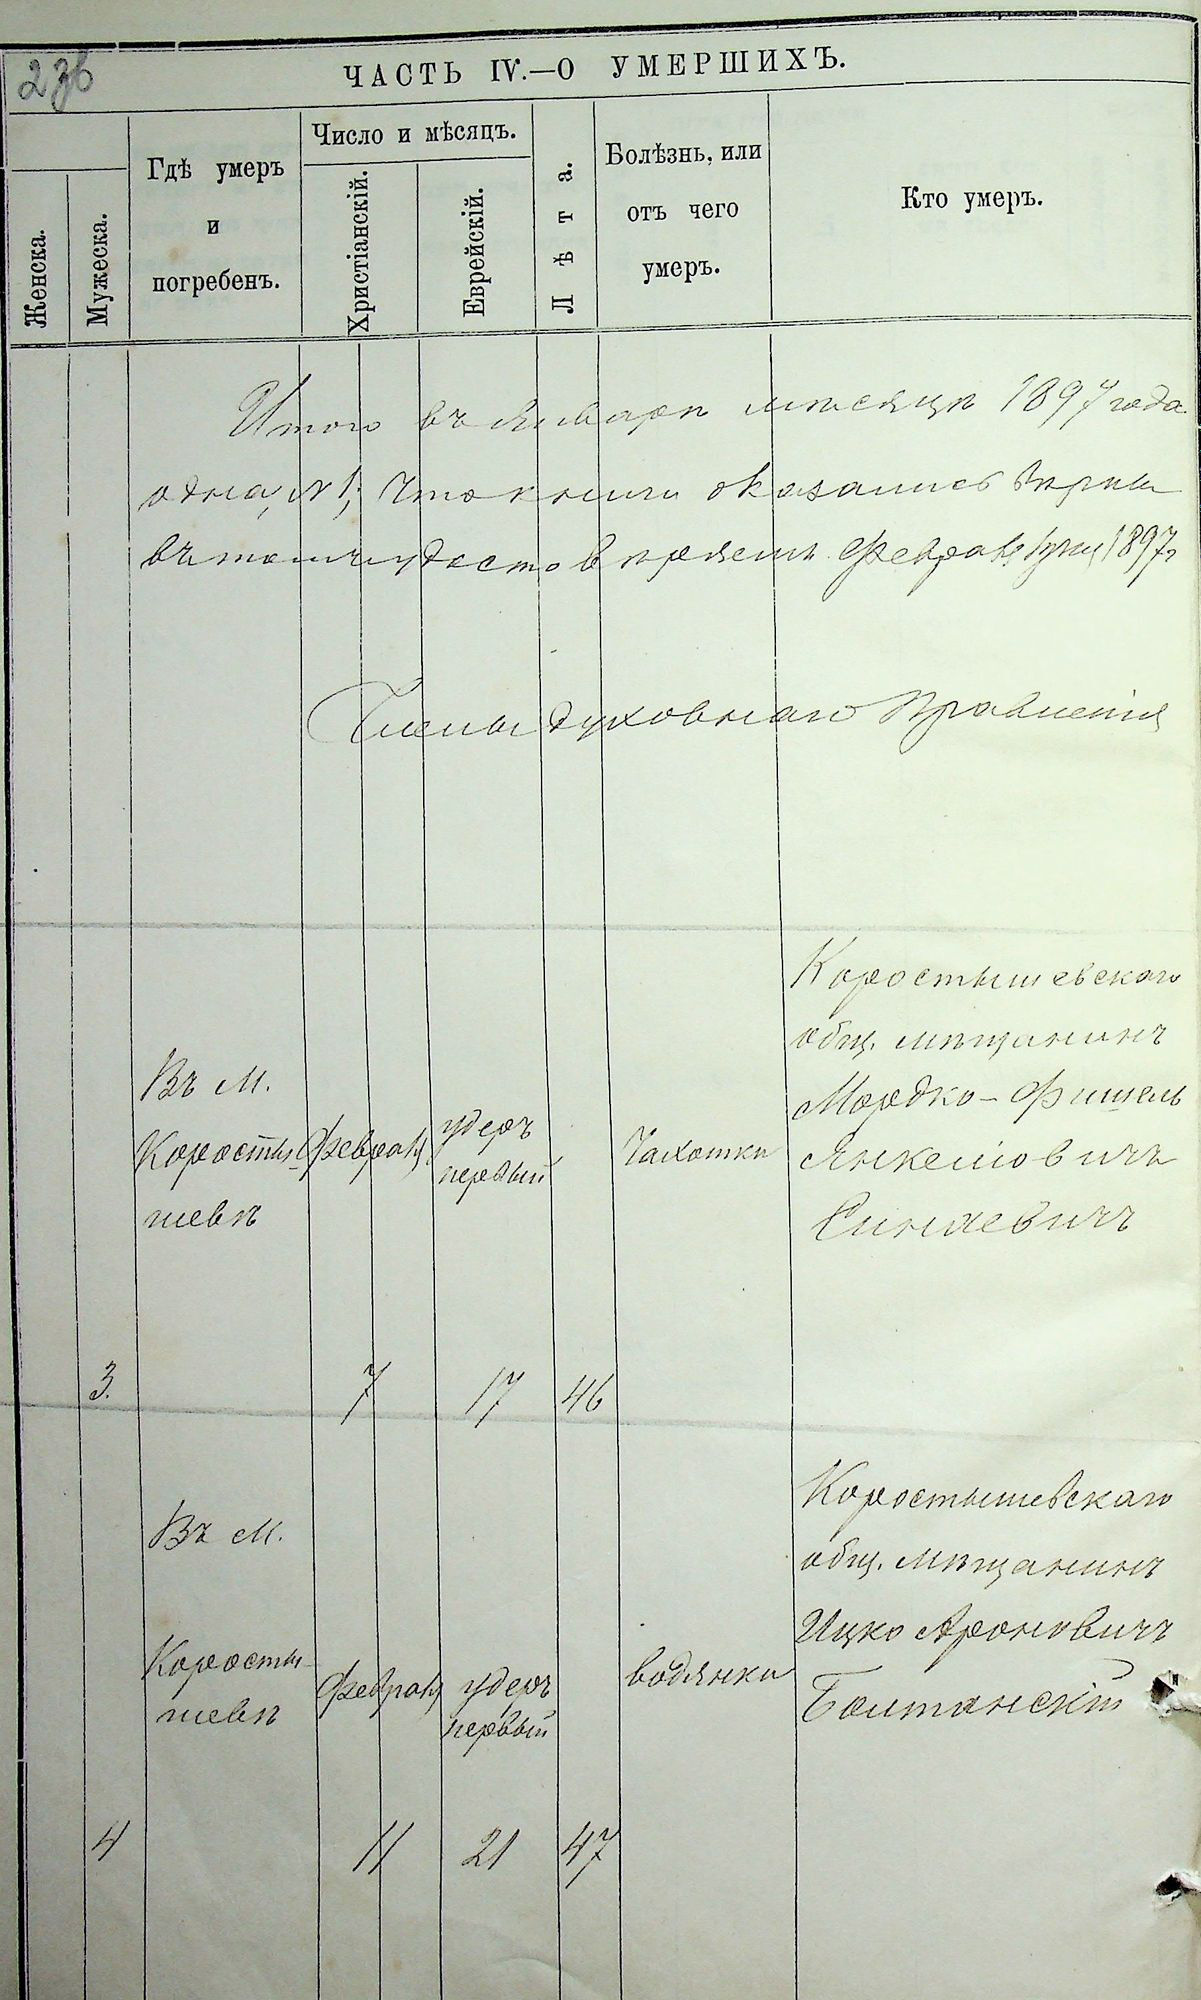 236
ЧАСТЬ IV.—О УМЕРШИХЪ.
Женска.
Мужеска.
Гдѣ умеръ
и
погребенъ.
Число и мѣсяцъ.
Христіанскій.
Еврейскій.
Лѣта.
Болѣзнь, или
отъ чего
умеръ.
Кто умеръ.
Итого въ Январѣ мѣсяцѣ 1897 года
одна, № 1, что книги оказались вѣрны
въ томъ удостовѣряемъ Февраля 1897
Члены духовнаго Правленія
3.
Въ м.
Коросты-
шевѣ
Февраля
7
Удеръ
первый
17
46
Чахотки
Коростышевскаго
общ. мѣщанинъ
Мордко-Фишель
Янкелiовичъ
Синяевичъ
4
Въ м.
Коросты-
шевѣ
Февраля
11
Удеръ
первый
21
47
водянки
Коростышевскаго
общ. мѣщанинъ
Ицко Ароновичъ
Болтянскій